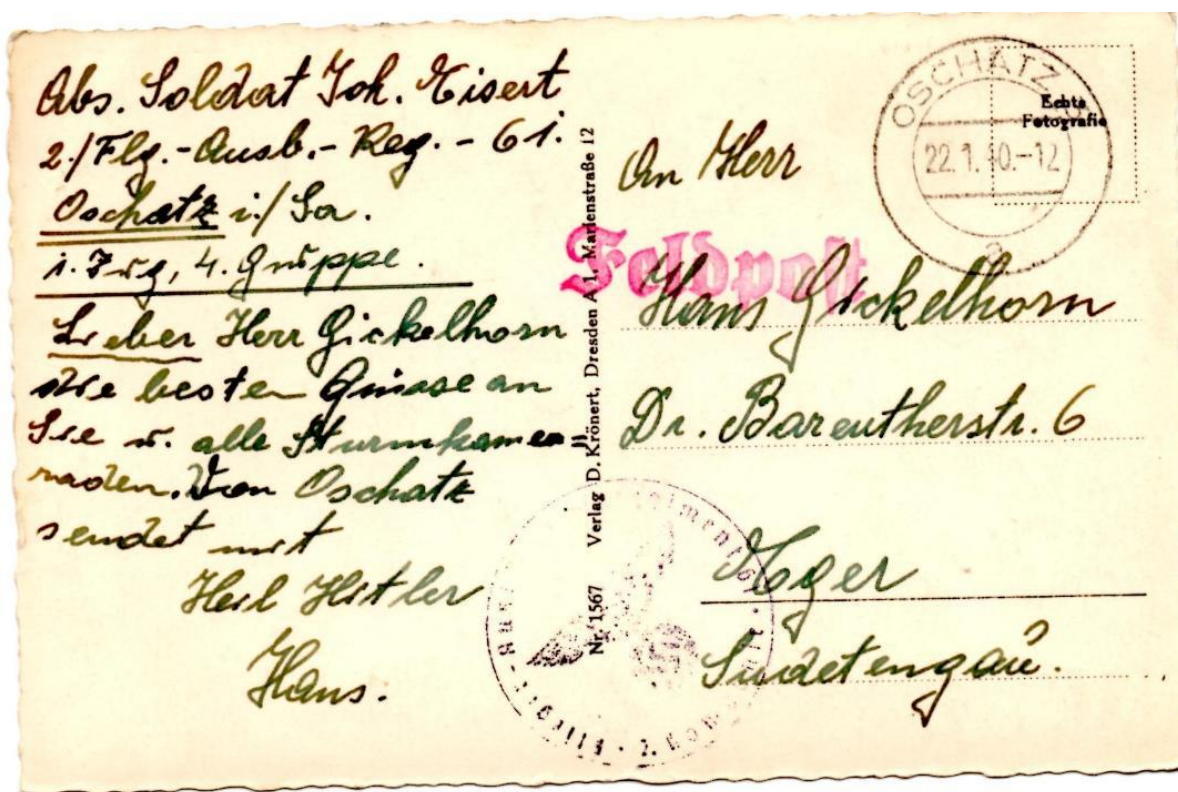 Abs. Soldat Joh. Eisert
2./Flg.-Ausb.-Reg.-61.
Oschatz i./Sa.
1. Zug, 4. Gruppe.
Lieber Herr Gickelhorn
die besten Grüsse an
Sie u. alle Sturmkame
raden. Von Oschatz
sendet mit
Heil Hitler
Hans.
Nr. 1567 Verlag D. Krönert, Dresden A 1, Marienstraße 12
OSCHATZ
22.1.40.-12
a
Echte
Fotografie
Feldpost
An Herr
Hans Gickelhorn
Dr. Bareutherstr. 6
Eger
Sudetengau.